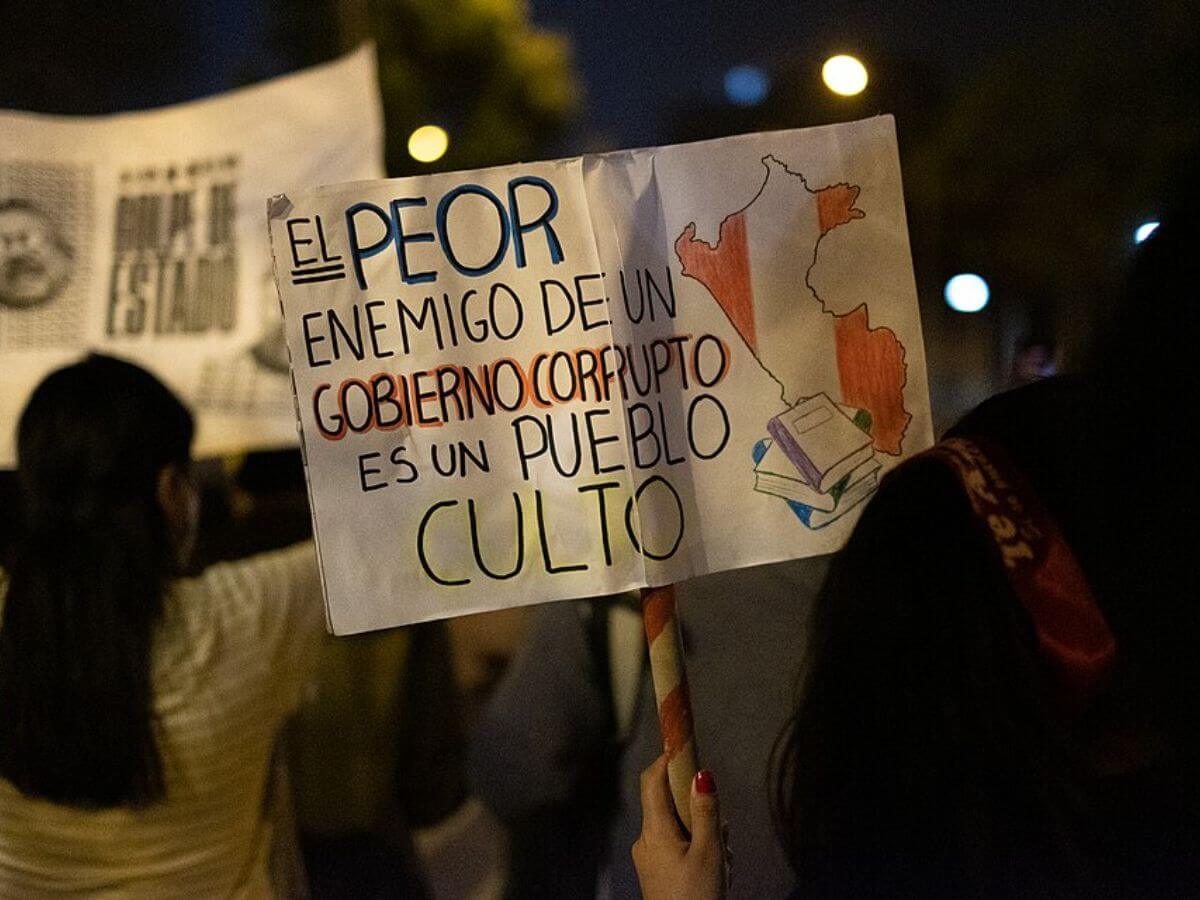 GOLPE DE
ESTADO
EL PEOR
ENEMIGO DE UN
GOBIERNO CORRUPTO
ES UN PUEBLO
CULTO